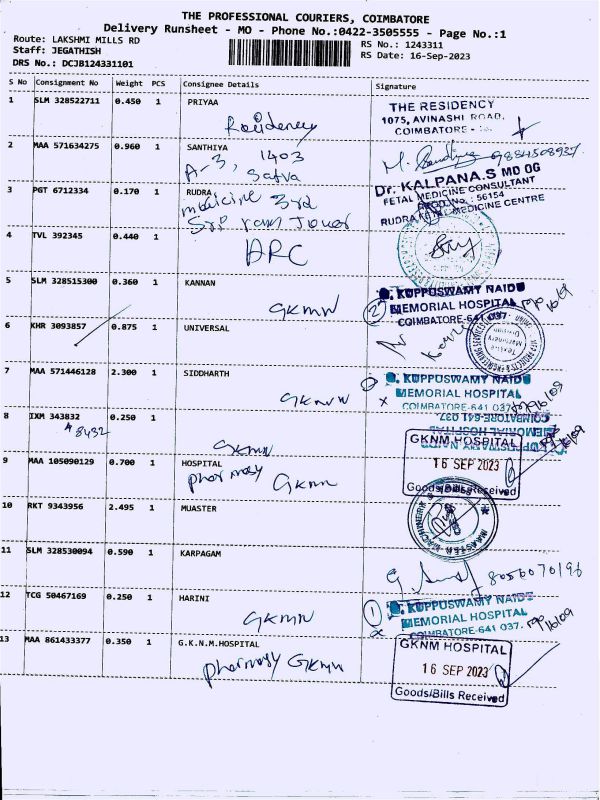 THE PROFESSIONAL COURIERS, COIMBATORE
Delivery Runsheet - MO - Phone No.:0422-3505555 - Page No.:1
Route: LAKSHMI MILLS RD
RS No.: 1243311
Staff: JEGATHISH
RS Date: 16-Sep-2023
DRS No.: DCJB124331101
S No Consignment No Weight PCS Consignee Details Signature
1 SLM 328522711 0.450 1 PRIYAA
Residency
THE RESIDENCY
1075, AVINASHI ROAD,
COIMBATORE -
2 MAA 571634275 0.960 1 SANTHIYA
A-3, 1403
Satva
3 PGT 6712334 0.170 1 RUDRA
medicine 3rd
ram Tower
Dr. KALPANA.S MD OG
FETAL MEDICINE CONSULTANT
REGD.No : 56154
RUDRA FETAL MEDICINE CENTRE
4 TVL 392345 0.440 1
ARC
5 SLM 328515300 0.360 1 KANNAN
GKMN
2
G. KUPPUSWAMY NAIDU
MEMORIAL HOSPITAL
COIMBATORE-641 037.
6 KHR 3093857 0.875 1 UNIVERSAL
7 MAA 571446128 2.300 1 SIDDHARTH
GKMN
G. KUPPUSWAMY NAIDU
MEMORIAL HOSPITAL
COIMBATORE-641 037
8 IXM 343832 0.250 1
8432
GKMN
KUPPUSWAMY NAIDU
MEMORIAL HOSPITAL
COIMBATORE-641 037.
9 MAA 105090129 0.700 1 HOSPITAL
pharmasy GKMN
GKNM HOSPITAL
16 SEP 2023
Goods/Bills Received
10 RKT 9343956 2.495 1 MUASTER
11 SLM 328530094 0.590 1 KARPAGAM
8056070196
12 TCG 50467169 0.250 1 HARINI
GKMN
1
G. KUPPUSWAMY NAIDU
MEMORIAL HOSPITAL
COIMBATORE-641 037.
13 MAA 861433377 0.350 1 G.K.N.M.HOSPITAL
pharmasy GKMN
GKNM HOSPITAL
16 SEP 2023
Goods/Bills Received